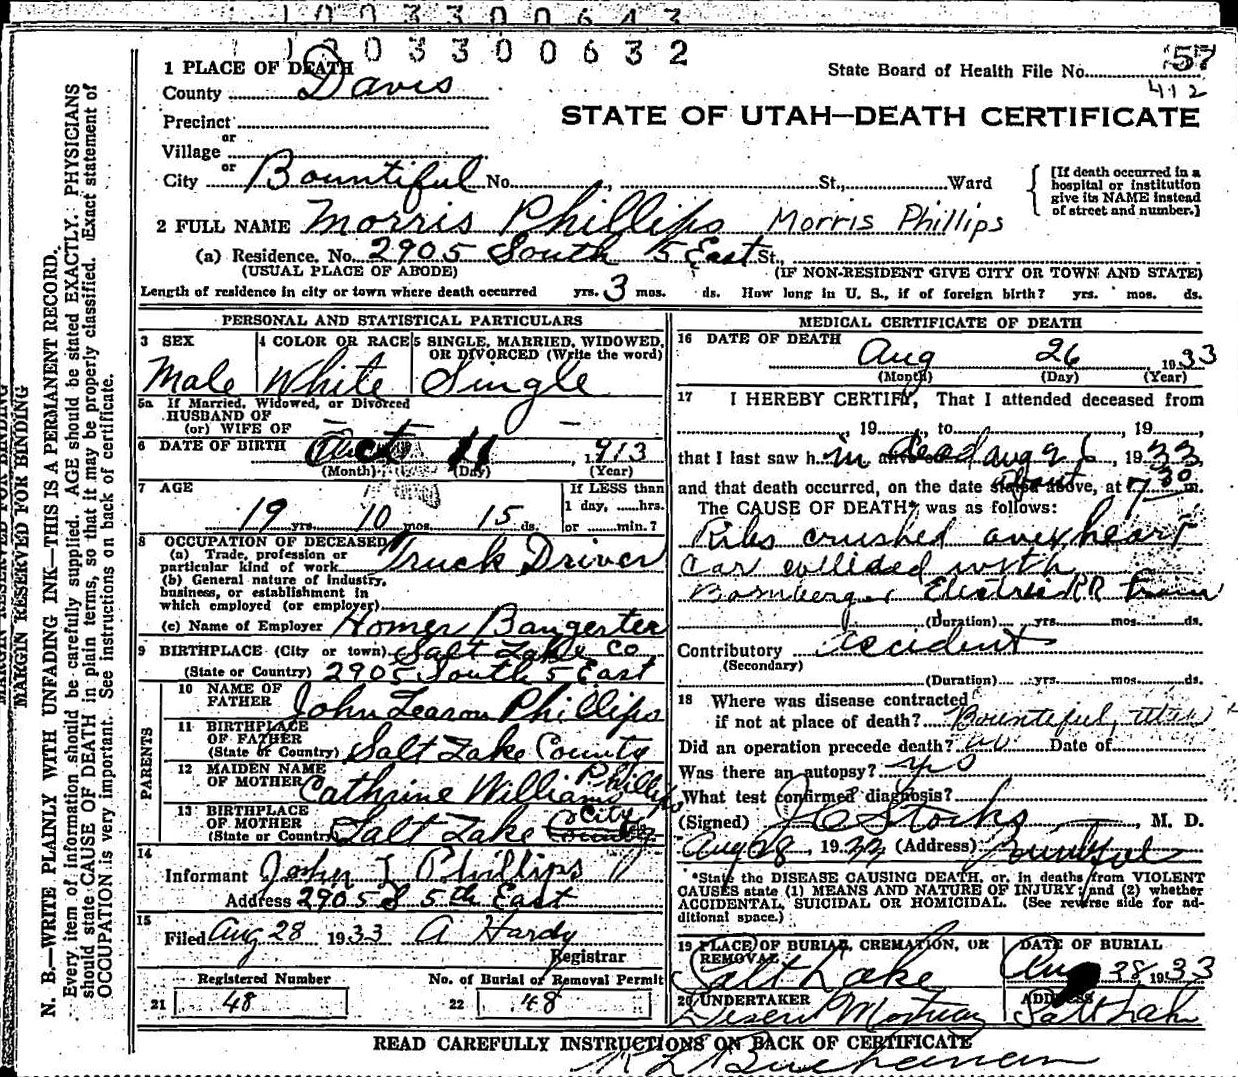 1003300643
1003300632
1 PLACE OF DEATH
County Davis
State Board of Health File No. 57
412
STATE OF UTAH—DEATH CERTIFICATE
Precinct
or
Village
or
City Bountiful No. , St., Ward
[If death occurred in a hospital or institution give its NAME instead of street and number.]
2 FULL NAME Morris Phillips Morris Phillips
(a) Residence. No. 2905 South 5 East St.,
(USUAL PLACE OF ABODE) (IF NON-RESIDENT GIVE CITY OR TOWN AND STATE)
Length of residence in city or town where death occurred yrs. 3 mos. ds. How long in U. S., if of foreign birth? yrs. mos. ds.
PERSONAL AND STATISTICAL PARTICULARS
3 SEX Male
4 COLOR OR RACE White
5 SINGLE, MARRIED, WIDOWED, OR DIVORCED (Write the word) Single
5a If Married, Widowed, or Divorced
HUSBAND OF
(or) WIFE OF —
6 DATE OF BIRTH Oct 11, 1913
(Month) (Day) (Year)
7 AGE
19 yrs. 10 mos. 15 ds.
If LESS than
1 day, hrs.
or min.?
8 OCCUPATION OF DECEASED
(a) Trade, profession or
particular kind of work Truck Driver
(b) General nature of industry,
business, or establishment in
which employed (or employer)
(c) Name of Employer Homer Bangerter
9 BIRTHPLACE (City or town) Salt Lake Co
(State or Country) 2905 South 5 East
PARENTS
10 NAME OF FATHER John Learon Phillips
11 BIRTHPLACE OF FATHER
(State or Country) Salt Lake County
12 MAIDEN NAME OF MOTHER Cathrine Williams Phillips
13 BIRTHPLACE OF MOTHER
(State or Country) Salt Lake County City
14
Informant John L Phillips
Address 2905 S 5th East
15
Filed Aug 28 1933 A Hardy
Registrar
Registered Number No. of Burial or Removal Permit
21 48 22 48
MEDICAL CERTIFICATE OF DEATH
16 DATE OF DEATH
Aug 26 1933
(Month) (Day) (Year)
17 I HEREBY CERTIFY, That I attended deceased from
, 19 to , 19 ,
that I last saw him alive on dead Aug 26, 1933
and that death occurred, on the date stated above, at about 7 30 m.
The CAUSE OF DEATH* was as follows:
Ribs crushed over heart
Car collided with
Bamberger Electric RR train
(Duration) yrs. mos. ds.
Contributory accident
(Secondary)
(Duration) yrs. mos. ds.
18 Where was disease contracted
if not at place of death? Bountiful, Utah
Did an operation precede death? no Date of
Was there an autopsy? yes
What test confirmed diagnosis?
(Signed) J C Stocks, M. D.
Aug 28, 1933 (Address) Bountiful
*State the DISEASE CAUSING DEATH, or, in deaths from VIOLENT
CAUSES state (1) MEANS AND NATURE OF INJURY; and (2) whether
ACCIDENTAL, SUICIDAL OR HOMICIDAL. (See reverse side for ad-
ditional space.)
19 PLACE OF BURIAL, CREMATION, OR REMOVAL
Salt Lake
DATE OF BURIAL
Aug 28 1933
20 UNDERTAKER
Deseret Mortuary
ADDRESS
Salt Lake
READ CAREFULLY INSTRUCTIONS ON BACK OF CERTIFICATE
R L Buchanan
MARGIN RESERVED FOR BINDING
MARGIN RESERVED FOR BINDING
N. B.—WRITE PLAINLY WITH UNFADING INK—THIS IS A PERMANENT RECORD.
Every item of information should be carefully supplied. AGE should be stated EXACTLY. PHYSICIANS
should state CAUSE OF DEATH in plain terms, so that it may be properly classified. Exact statement of
OCCUPATION is very important. See instructions on back of certificate.